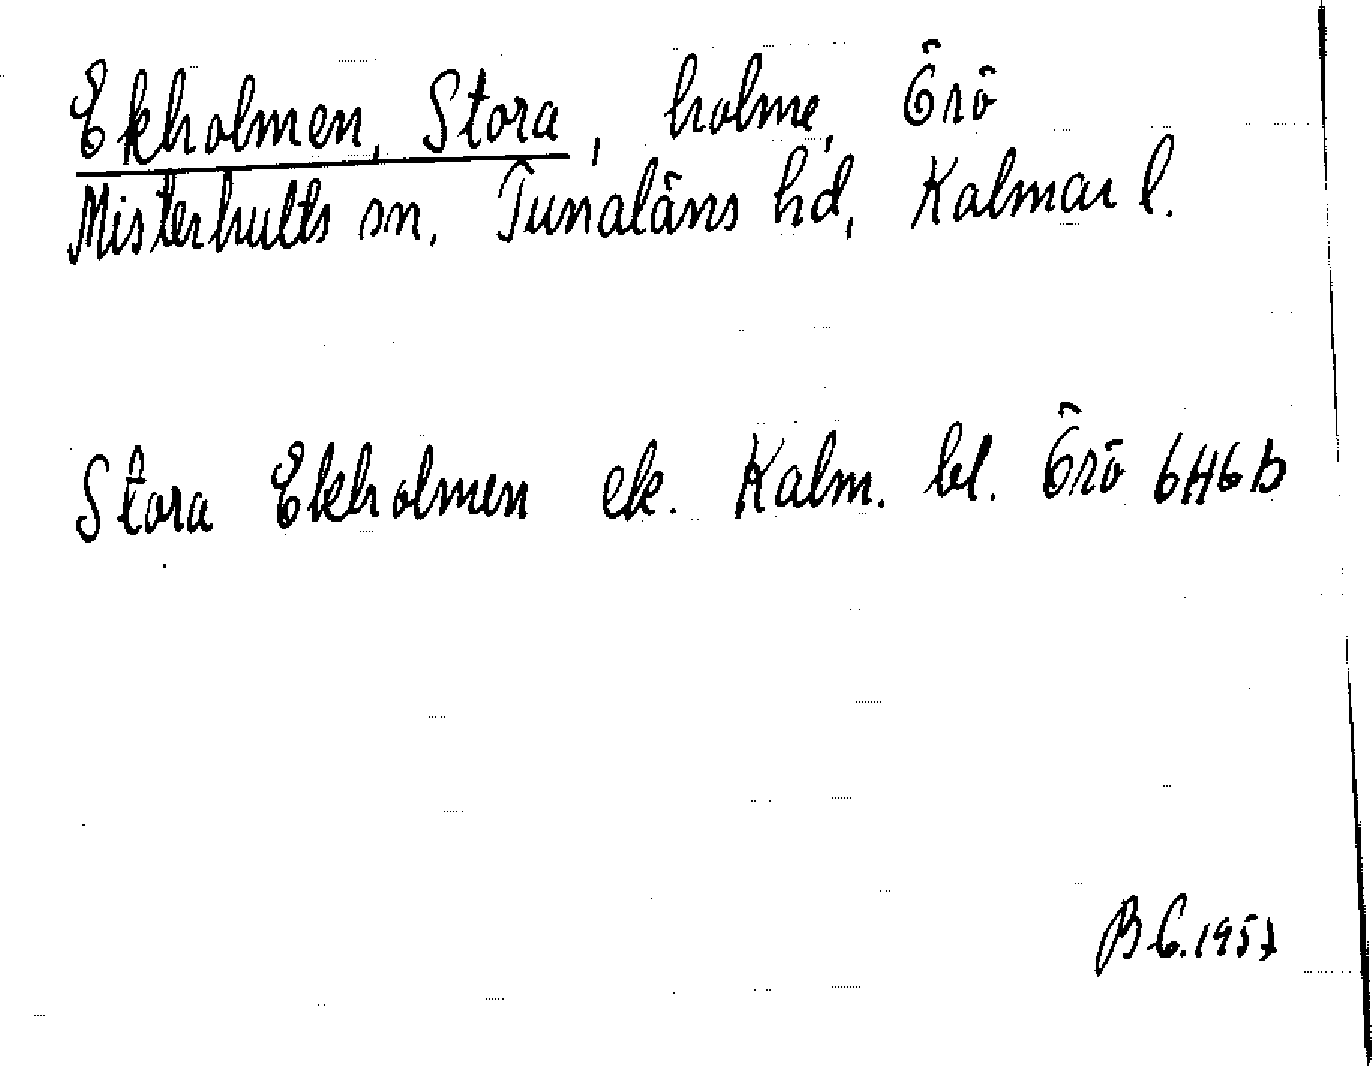 Ekholmen, Stora, holme, Örö
Misterhults sn, Tunaläns hd, Kalmar l.
Stora Ekholmen ek. Kalm. bl. Örö 6H6b
B C. 1957